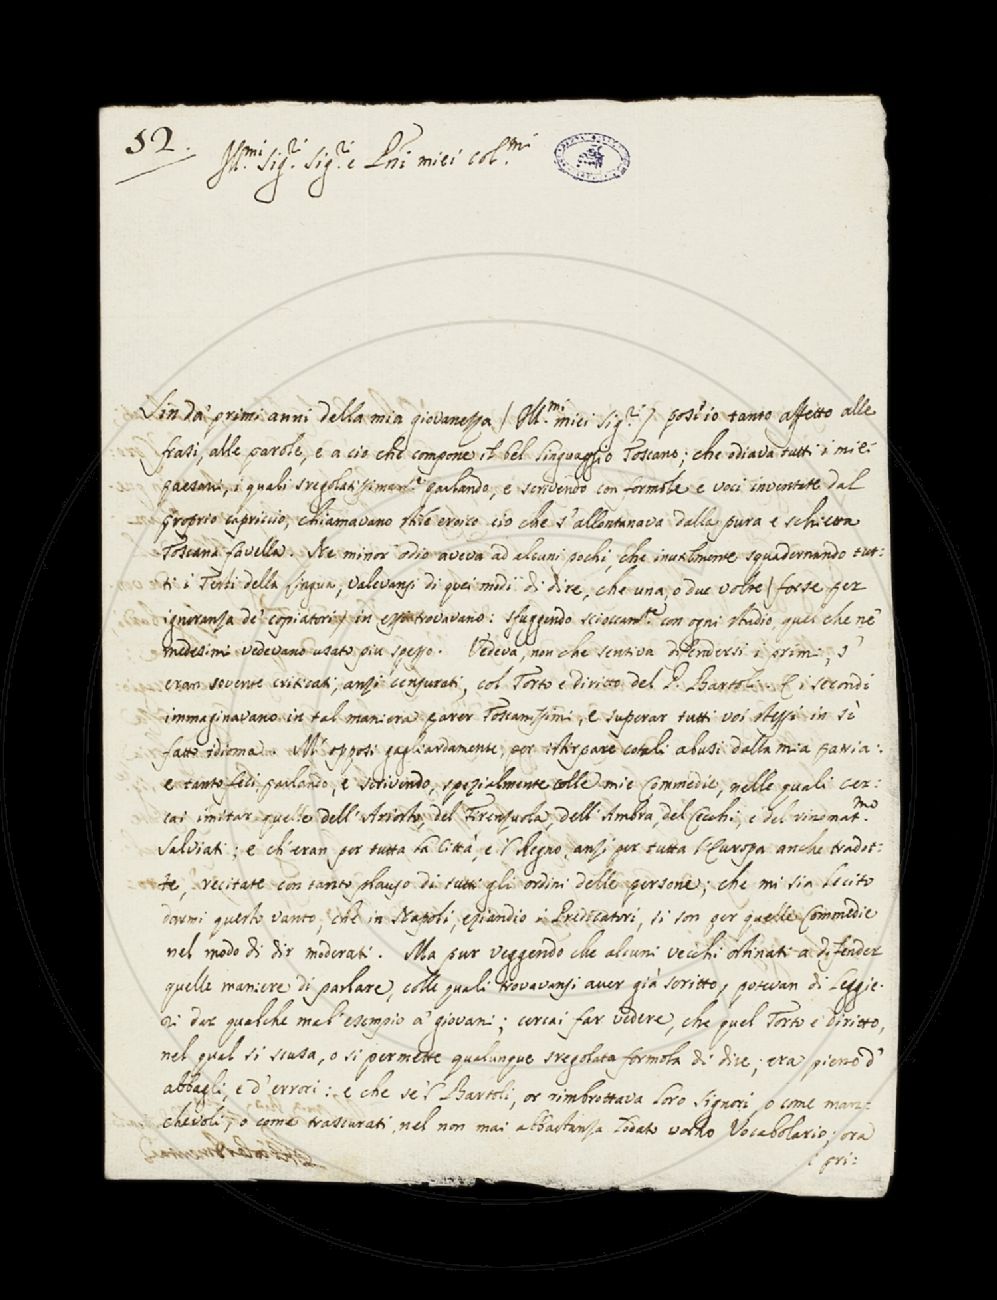 52.
Ill.mi Sig.ri Sig.ri e Pñi miei Col.mi
Sin da' primi anni della mia giovanezza / Ill.mi miei Sig.ri / posi io tanto affetto alle
frasi, alle parole, e a ciò che compone il bel linguaggio Toscano; che odiava tutti i miei
paesani, i quali sregolatissimam.te parlando, e scrivendo con formole e voci inventate dal
proprio capriccio, chiamavano stile eroico ciò che s'allontanava dalla pura e schietta
Toscana favella. Ne minor odio aveva ad alcuni pochi, che inutilmente squadernando tut:
ti i Testi della lingua, valevansi di quei modi di dire, che una, o due volte / forse per
ignoranza de' copiatori / in essi trovavano: sfuggendo scioccam.te con ogni studio, quei che ne'
medesimi vedevano usato più spesso. Vedeva, non che sentiva difendersi i primi, s'
eran sovente criticati, anzi censurati, col Torto e diritto del P. Bartoli. E i secondi
immaginavano in tal maniera parer Toscanissimi, e superar tutti voi stessi in sì
fatto idioma. M'opposi gagliardamente, per istirpare cotali abusi dalla mia patria:
e tanto feci parlando, e scrivendo, spezialmente colle mie Commedie, nelle quali cer:
cai imitar quelle dell'Ariosto, del Firenzuola, dell'Ambra, del Cecchi, e del rinomat.mo
Salviati; e ch'eran per tutta la Città, e 'l Regno, anzi per tutta l'Europa anche tradot:
te, recitate con tanto plauso di tutti gli ordini delle persone; che mi sia lecito
darmi questo vanto, che in Napoli, eziandio i Predicatori, si son per quelle Commedie
nel modo di dir moderati. Ma pur veggendo che alcuni vecchi ostinati a difender
quelle maniere di parlare, colle quali trovavansi aver già scritto, potevan di leggie:
ri dar qualche mal'esempio a' giovani; cercai far vedere, che quel Torto e diritto,
nel qual si scusa, o si permette qualunque sregolata formola di dire, era pieno d'
abbagli, e d'errori: e che se 'l Bartoli, or rimbrottava loro Signori, o come man:
chevoli, o come trascurati, nel non mai abbastanza lodato vostro Vocabolario; ora
i pri: